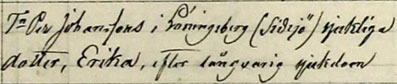 Tn Per Johanssons i Köningsberg (Sidsjö) sjukliga
dotter, Erika, efter långvarig sjukdom